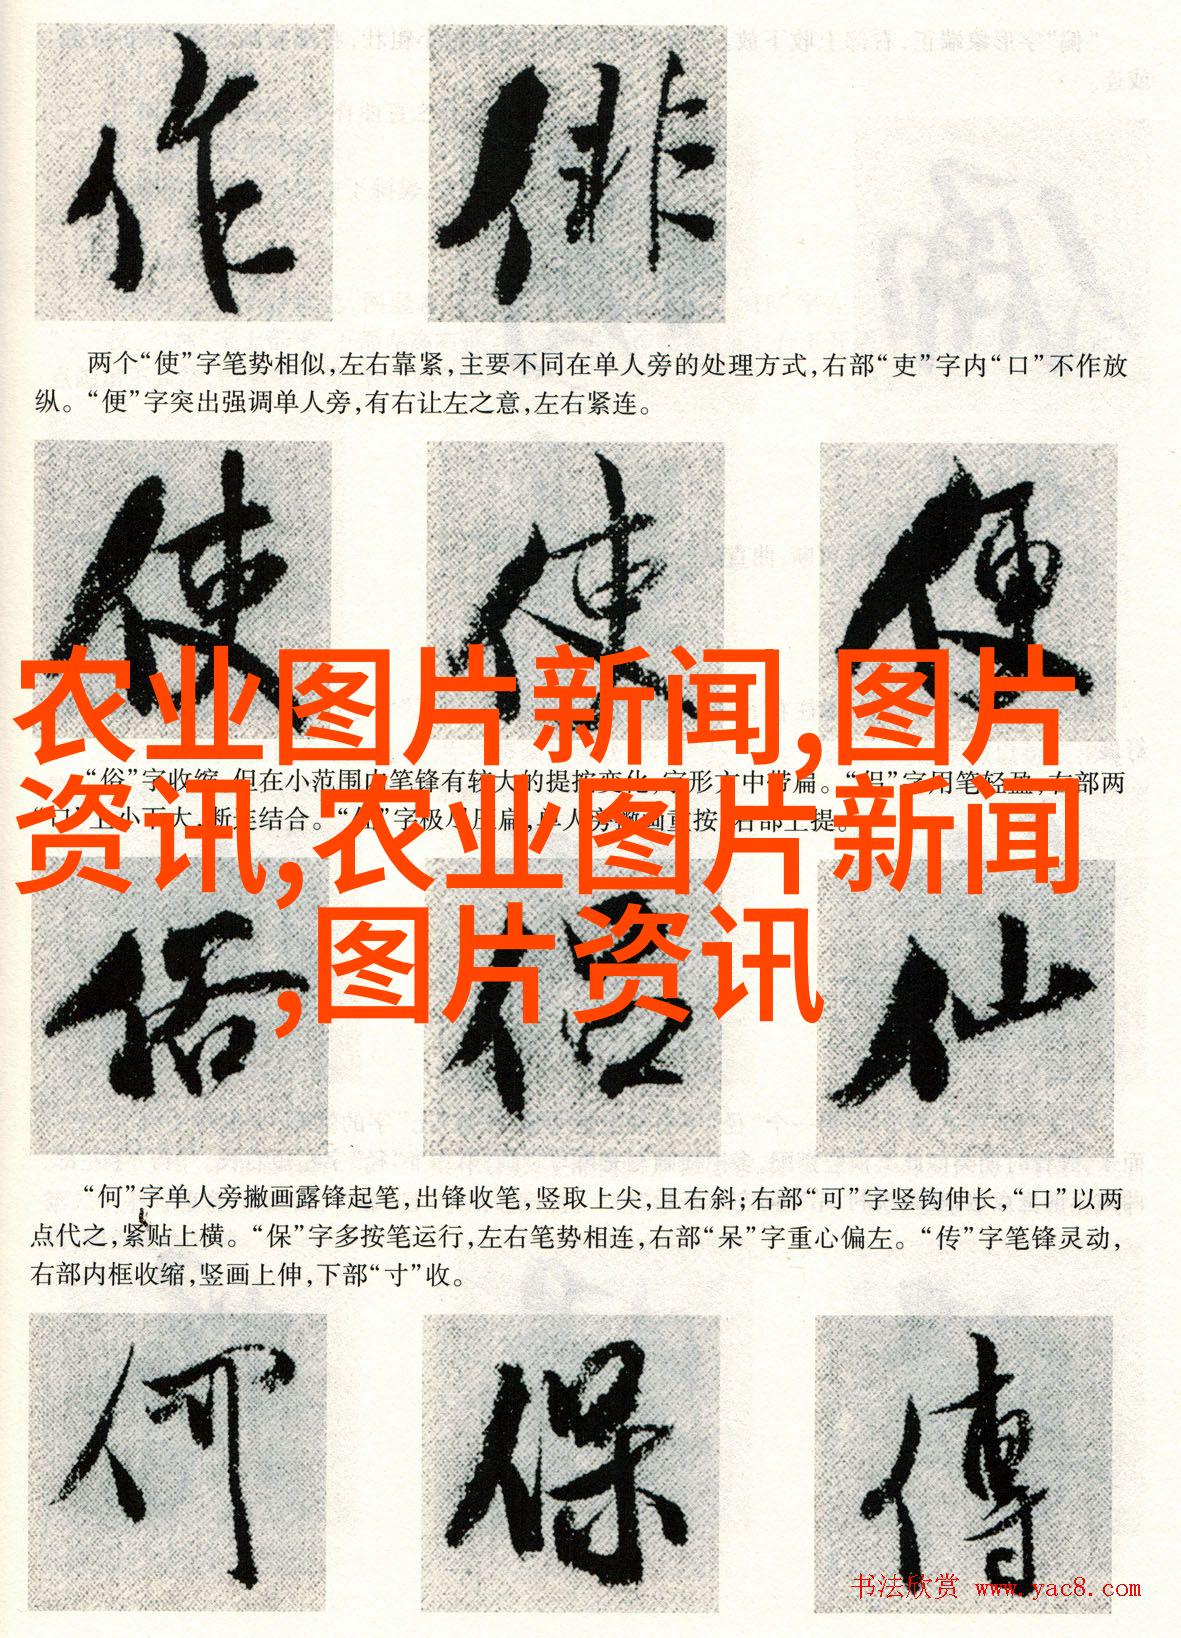 作 俳
两个“使”字笔势相似，左右靠紧，主要不同在单人旁的处理方式，右部“吏”字内“口”不作放
纵。“便”字突出强调单人旁，有右让左之意，左右紧连。
使 使 便
农业图片新闻,图片
“俗”字收缩，但在小范围内笔锋有较大的提按变化，字形方中带扁。“侣”字用笔轻盈，右部两
资讯,农业图片新闻
“口”上小下大，断连结合。“仙”字极尽压扁，单人旁撇画重按，右部上提。
,图片资讯
俗 侣 仙
“何”字单人旁撇画露锋起笔，出锋收笔，竖取上尖，且右斜；右部“可”字竖钩伸长，“口”以两
点代之，紧贴上横。“保”字多按笔运行，左右笔势相连，右部“呆”字重心偏左。“传”字笔锋灵动，
右部内框收缩，竖画上伸，下部“寸”收。
何 保 傳
书法欣赏 www.yac8.com